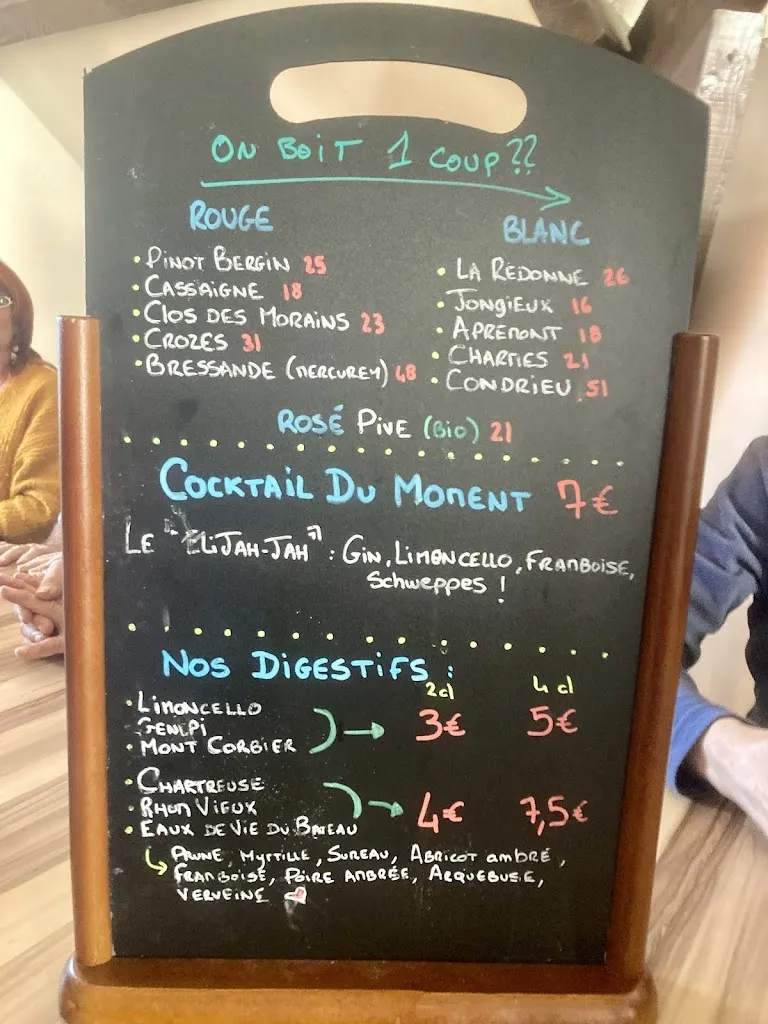 ON BOIT 1 COUP??
ROUGE
• PINOT BERGIN 25
• CASSAIGNE 18
• CLOS DES MORAINS 23
• CROZES 31
• BRESSANDE (MERCUREY) 48
BLANC
• LA REDONNE 26
• JONGIEUX 16
• APREMONT 18
• CHARMES 21
• CONDRIEU 51
ROSÉ PIVE (BIO) 21
COCKTAIL DU MOMENT 7€
LE "ELIJAH-JAH" : GIN, LIMONCELLO, FRAMBOISE,
Schweppes !
NOS DIGESTIFS :
2cl 4 cl
• LIMONCELLO
GENEPI
• MONT CORBIER
3€ 5€
• CHARTREUSE
• RHUM VIEUX
• EAUX DE VIE DU BATEAU
4€ 7,5€
PRUNE, MYRTILLE, SUREAU, ABRICOT ambré,
FRAMBOISE, POIRE AMBRÉE, ARQUEBUSE,
VERVEINE